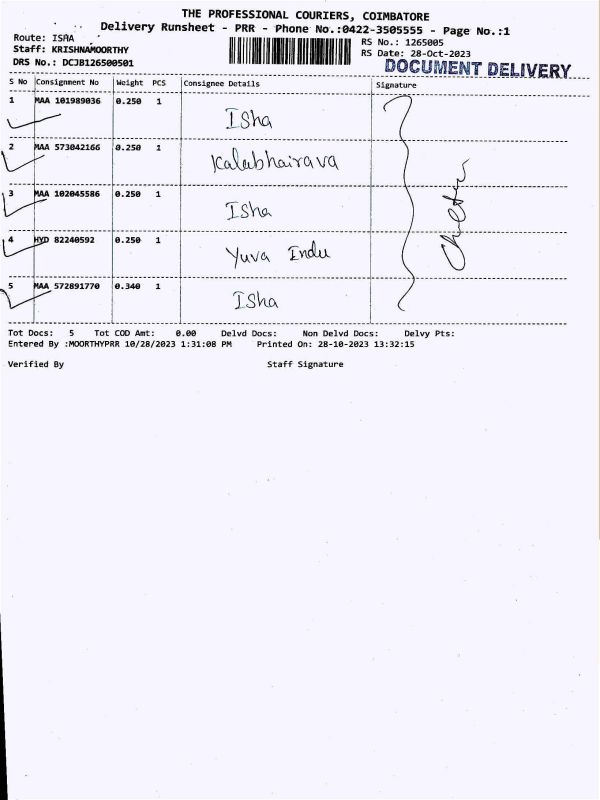 THE PROFESSIONAL COURIERS, COIMBATORE
Delivery Runsheet - PRR - Phone No.:0422-3505555 - Page No.:1
Route: ISAA
RS No.: 1265005
Staff: KRISHNAMOORTHY
RS Date: 28-Oct-2023
DRS No.: DCJB126500501
DOCUMENT DELIVERY
S No Consignment No Weight PCS Consignee Details Signature
1 MAA 101989036 0.250 1
Isha
2 MAA 573042166 0.250 1
Kalabhairava
3 MAA 102045586 0.250 1
Isha
4 HYD 82240592 0.250 1
Yuva Indu
5 MAA 572891770 0.340 1
Isha
Tot Docs: 5 Tot COD Amt: 0.00 Delvd Docs: Non Delvd Docs: Delvy Pts:
Entered By :MOORTHYPRR 10/28/2023 1:31:08 PM Printed On: 28-10-2023 13:32:15
Verified By Staff Signature